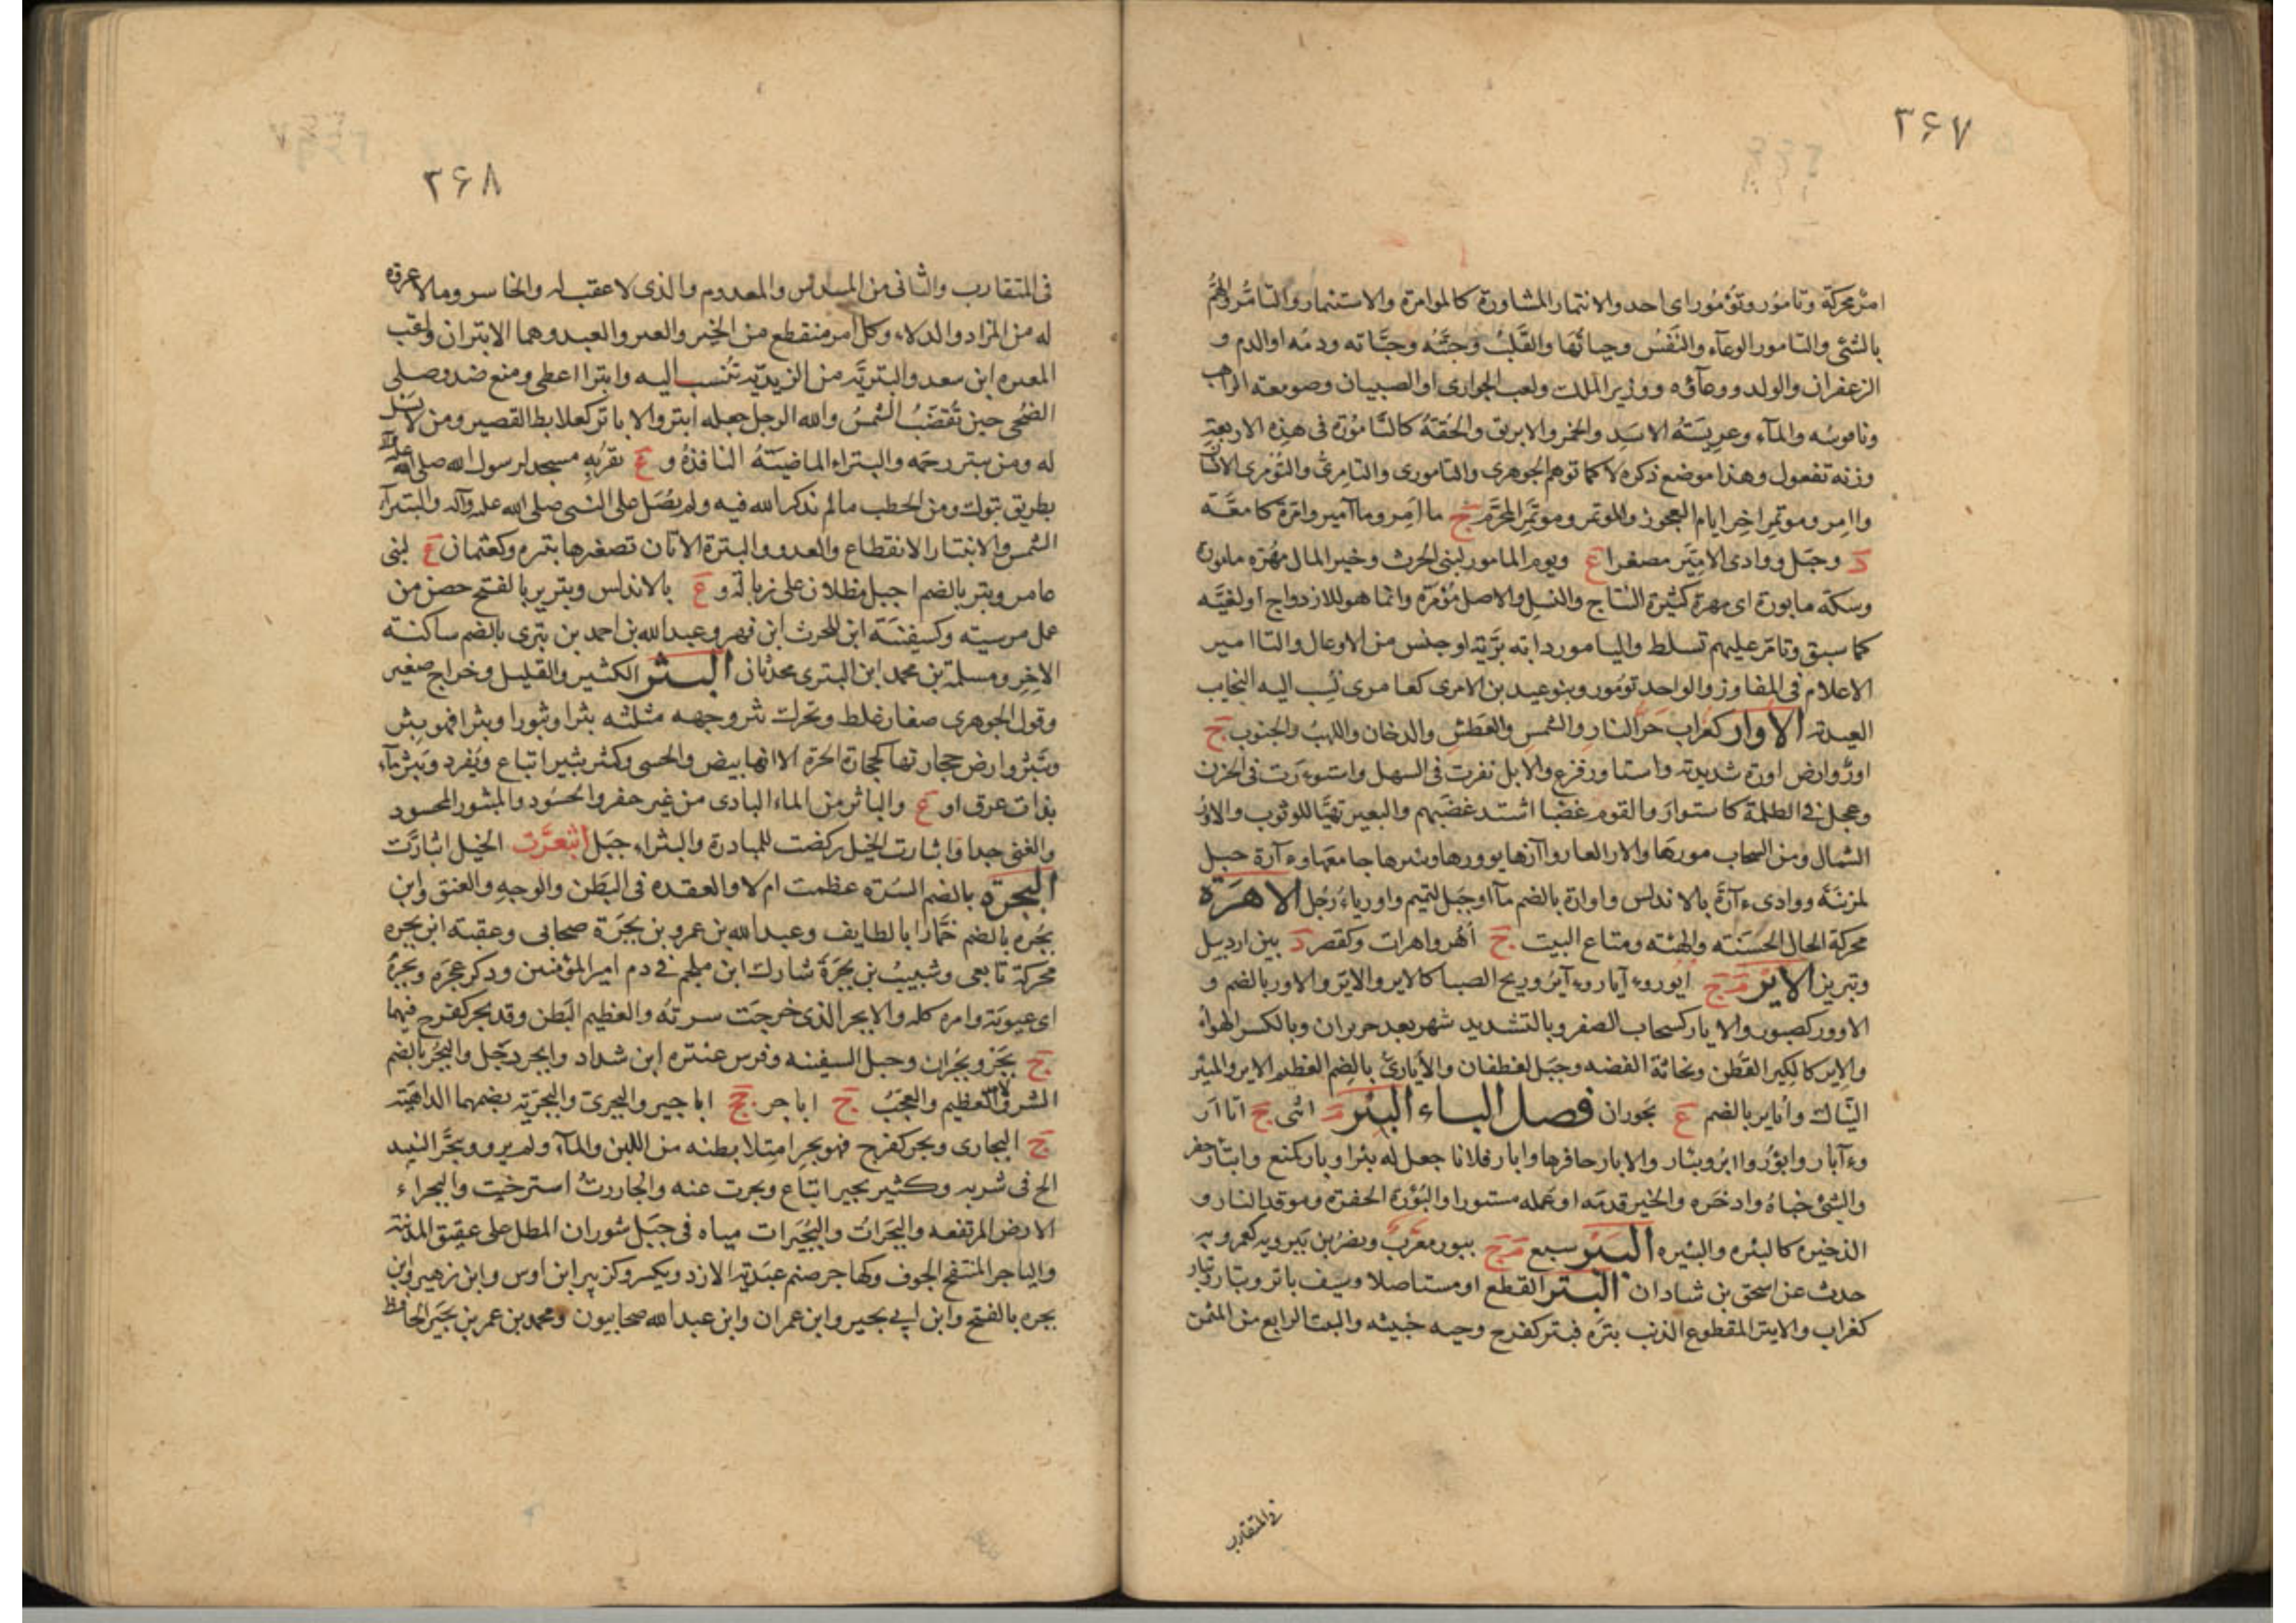 ۳۶۷
امر محركة وتامور وتؤمور اى احد والائتمار المشاورة كالموامرة والاستئمار والتامّر والهمّ
بالشئ والتامور الوعآء والنفس وحياتها والقلب وحبّته وحياته ودمه او الدم و
الزعفران والولد ووعآؤه ووزير الملك ولعب الجوارى او الصبيان وصومعة الراهب
وناموسه والمآء وعريسة الاسد والخمر والابريق والحقة كالتامورة فى هذه الاربعة
وزنه تفعول وهذا موضع ذكره لا كما توهم الجوهرى والتامورى والتامرى والتؤمرى الانسان
وآمر وموتمر اخر ايام العجوز والموتمر وموتمر المحرم ج مآمر ومآمير وامرة كامعة
د وجبل ووادى الاميّر مصغرا ع ويوم المامور لبنى الحرث وخير المال مهرة مامورة
وسكة مابورة اى مهرة كثيرة النتاج والنسل والاصل مؤمرة وانما هو للازدواج او لغية
كما سبق وتامر عليهم تسلط واليامور دابة برّية او جنس من الاوعال والتاامير
الاعلام فى المفاوز والواحد تؤمور وبنو عيد بن الامرى كعامرى نسب اليه النجايب
العيدية الاوار كغراب حر النار والشمس والعطش والدخان واللهب والجنوب ج
اور وارض اورة شديدته واستاور فزع والابل نفرت فى السهل واستوءرت فى الحزن
وعجل فى الظلمة كاستوار والقوم غضبا اشتد غضبهم والبعير تهيّا للوثوب والاور
الشمال ومن السحاب مورها والار العار وآرها يوورها ويئرها جامعها وءآرة جبل
لمزينة ووادى ءآرة بالاندلس واوارة بالضم مآ او جبل لتميم واورياء رجل الاهرة
محركة الحال الحسنة والهيئة ومتاع البيت ج أهر واهرات وكقصر د بين اردبيل
وتبريز الاير م ج ايور وءايار وءاير وريح الصبا كالاير والايّر والاور بالضم و
الاوور كصبور والايار كسحاب الصفر وبالتشديد شهر بعد حزيران وبالكسر الهواء
والاير كالكير القطن ونحاتة الفضة وجبل لغطفان والأيارى بالضم العظيم الاير والميئر
النياك واياير بالضم ع بحوران فصل الباء البئر م انثى ج اباار
وءآبار وابؤر واابر وبئار والابار حافرها وابار فلانا جعل له بئرا وبار كمنع وابتار حفر
والشئ خباه وادخره والخير قدمه او عمله مستورا والبؤرة الحفرة وموقد النار و
الذخيرة كالبئرة والبئيرة الببر سبع م ج ببور معرب ونصر بن ببرويه كعمرويه
حدث عن اسحق بن شاذان البتر القطع او مستاصلا وسيف باتر وبتار وبتار
كغراب والابتر المقطوع الذنب بتره فبتر كفرح وحية خبيثة والبيت الرابع من المثمن
فى المتقارب
۳۶۸
فى المتقارب والثانى من المسدس والمعدوم والذى لا عقب له والخاسر وما لا عروة
له من المزاد والدلاء وكل امر منقطع من الخير والعير والعبد وهما الابتران ولقب
المغيرة ابن سعد والبترية من الزيدية تنسب اليه وابتر اعطى ومنع ضد وصلى
الضحى حين تقضب الشمس والله الرجل جعله ابتر والاباتر كعلابط القصير ومن لا نسل
له ومن يبتر رحمه والبتراء الماضية النافذة و ع بقربه مسجد لرسول الله صلى الله عليه وآله
بطريق تبوك ومن الخطب مالم يذكر الله فيه ولم يصل على النبى صلى الله عليه وآله والبتيرآء
الشمس والانبتار الانقطاع والعدو والبترة الاتان تصغيرها بتيره وكعثمان ع لبنى
عامر وبتر بالضم اجبل مطلان على زبالة و ع بالاندلس وبترير بالفتح حصن من
عمل مرسية وكسفينة ابن الحرث ابن فهر وعبدالله بن احمد بن بترى بالضم ساكنة
الاخر ومسلمة بن محمد ابن البترى محدثان البثر الكثير والقليل وخراج صغير
وقول الجوهرى صغار غلط ويحرك بثر وجهه مثلثه بثرا وبثورا وبثرا فهو بثر
وتبثر وارض حجارتها كحجارة الحرة الا انها بيض والحسى وكثر بثير اتباع ويفرد وبثر مآء
بذات عرق او ع والباثر من الماء البادى من غير حفر والحسود والمبثور المحسود
والغنى جدا وابثارت الخيل ركضت للمبادرة والبثراء جبل ابثعرت الخيل ابثارت
البجرة بالضم السرة عظمت ام لا والعقدة فى البطن والوجه والعنق وابن
بجرة بالضم خمّارا بالطايف وعبدالله بن عمرو بن بجرة صحابى وعقبة ابن بجره
محركة تابعى وشبيب بن بجرة شارك ابن ملجم فى دم امير المؤمنين وذكر عجره وبجره
اى عيوبه وامره كله والابجر الذى خرجت سرته والعظيم البطن وقد بجر كفرح فيهما
ج بجر وبجران وحبل السفينة وفرس عنترة ابن شداد وابجر رجل والبجر بالضم
الشر والامر العظيم والعجب ج اباجر جج اباجير والبجرى والبجرية بضمهما الداهية
ج البجارى وبجر كفرح فهو بجر امتلا بطنه من اللبن والمآء ولم يرو وتبجر النبيذ
الح فى شربه وكثير بجير اتباع وبجرت عنه وابجاررت استرخيت والبجراء
الارض المرتفعة والبجرات والبجيرات مياه فى جبل شوران المطل على عقيق المدينة
والباجر المنتفخ الجوف وكهاجر صنم عبدته الازد ويكسر وكزبير ابن اوس وابن زهير وابن
بجره بالفتح وابن ابى بجير وابن عمران وابن عبدالله صحابيون ومحمد بن عمر بن بجير الحافظ